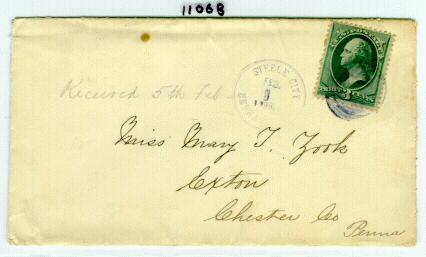 11068
STEELE CITY
NEBR
FEB.
Received 5th Feb
Miss Mary T. Zook
Exton
Chester Co
Penna